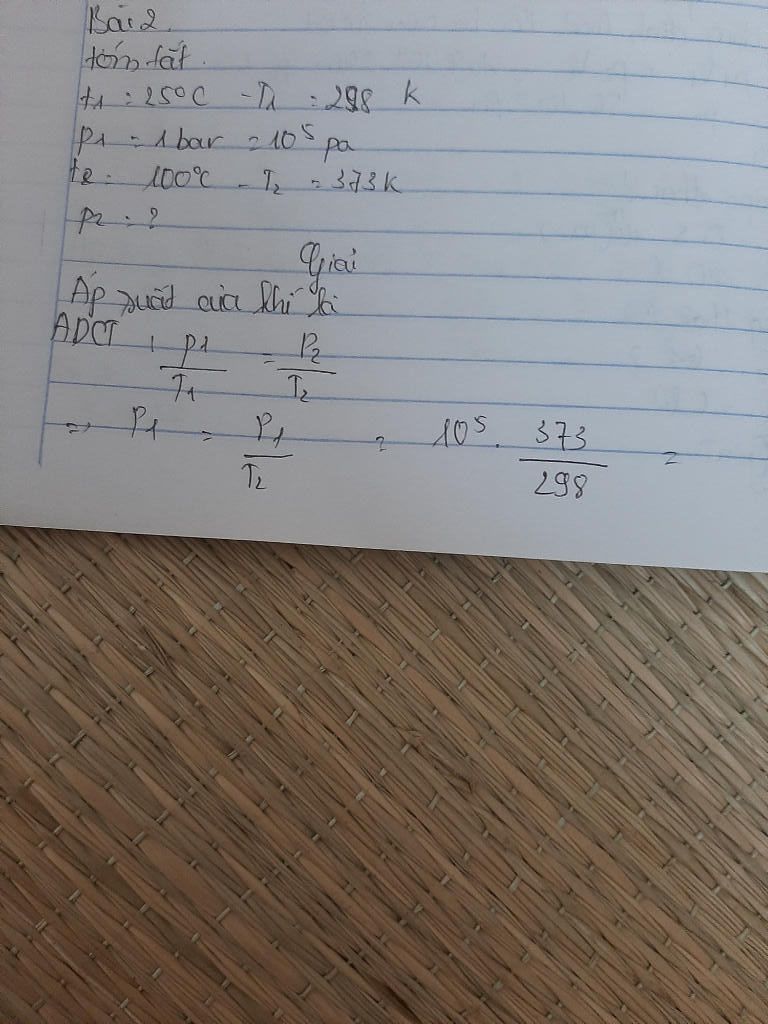 Bài 2.
tóm tắt.
t1 = 25°C - T1 = 298 K
P1 = 1 bar = 10⁵ pa
t2 = 100°C - T2 = 373 K
P2 = ?
Giải
Áp suất của khí là
ADCT : P1/T1 = P2/T2
=> P1 = P1/T2 = 10⁵. 373/298 =